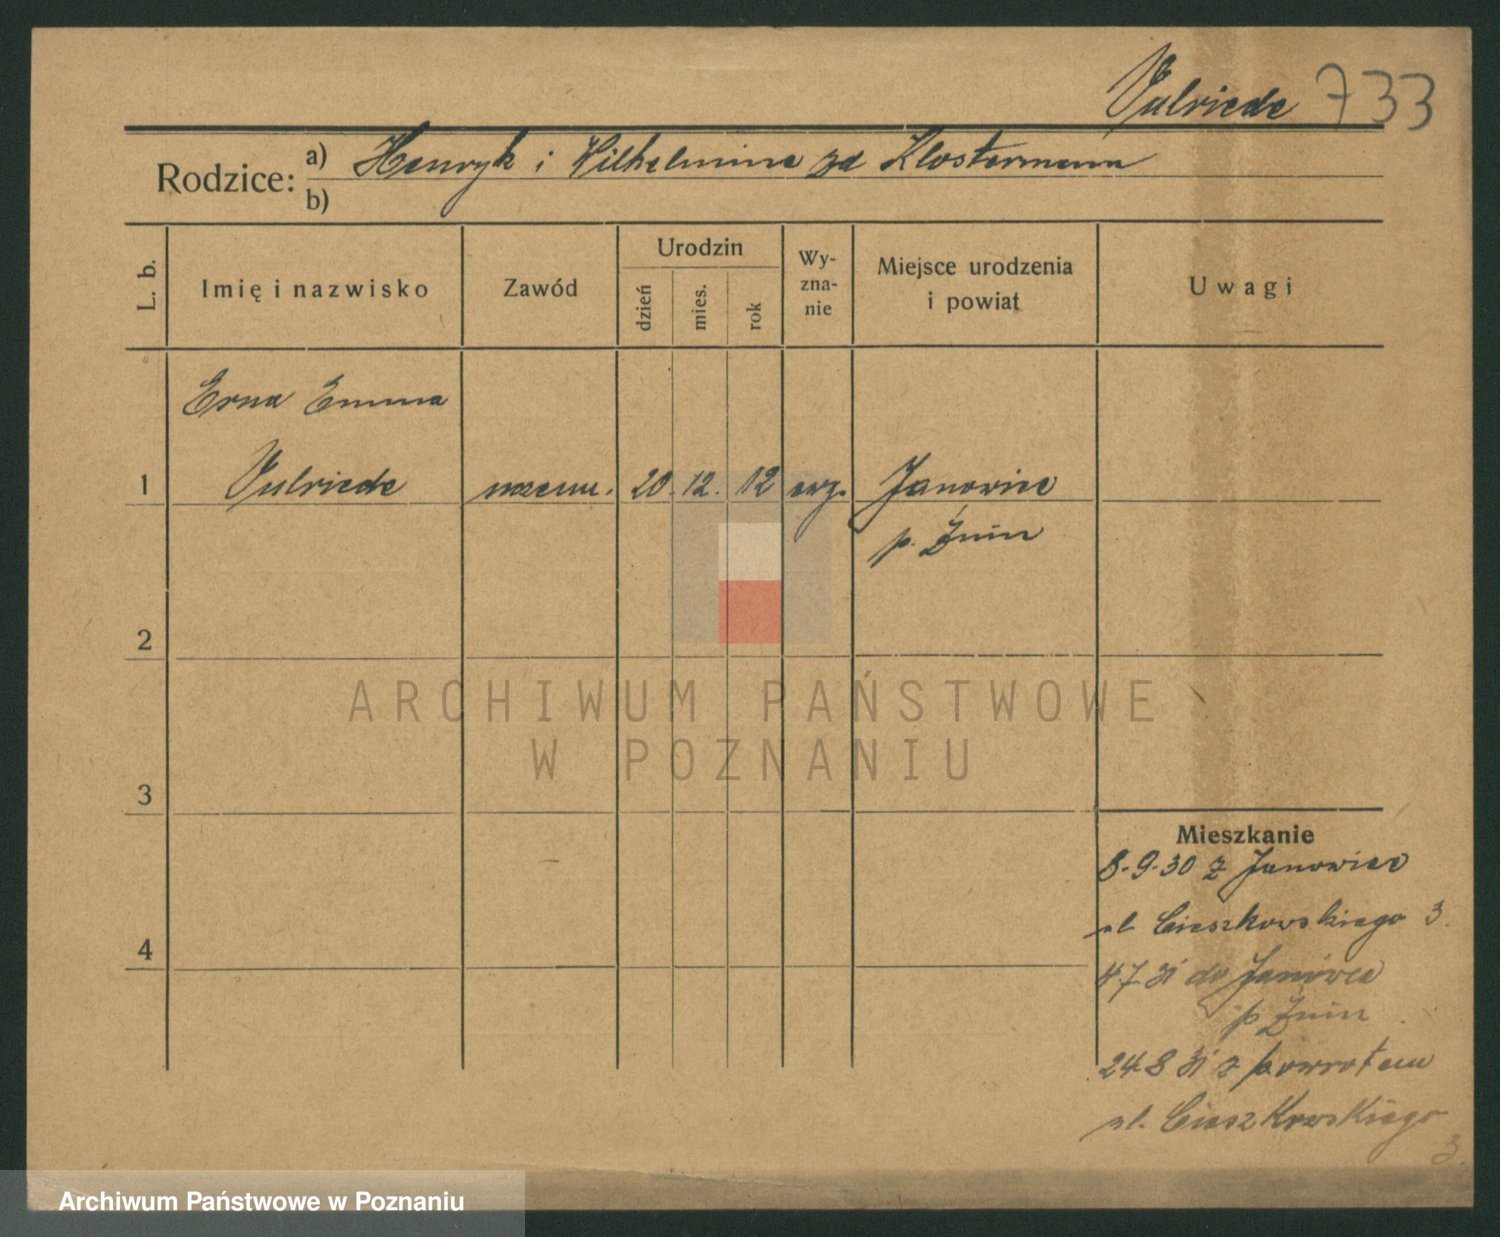 Vulriede 733
Rodzice: a) Henryk i Wilhelmine zd Klostermann
b)
L. b.
Imię i nazwisko
Zawód
Urodzin
dzień
mies.
rok
Wy-
zna-
nie
Miejsce urodzenia
i powiat
Uwagi
Erna Emma
1 Vulriede uczenn. 20. 12. 12 ewg. Janowice
p. Żnin
2
3
4
Mieszkanie
8.9.30 z Janowiec
ul. Cieszkowskiego 3.
4 7 31 do Janówca
p Żnin
24 8 31 z powrotem
ul. Cieszkowskiego
3.
ARCHIWUM PAŃSTWOWE
W POZNANIU
Archiwum Państwowe w Poznaniu